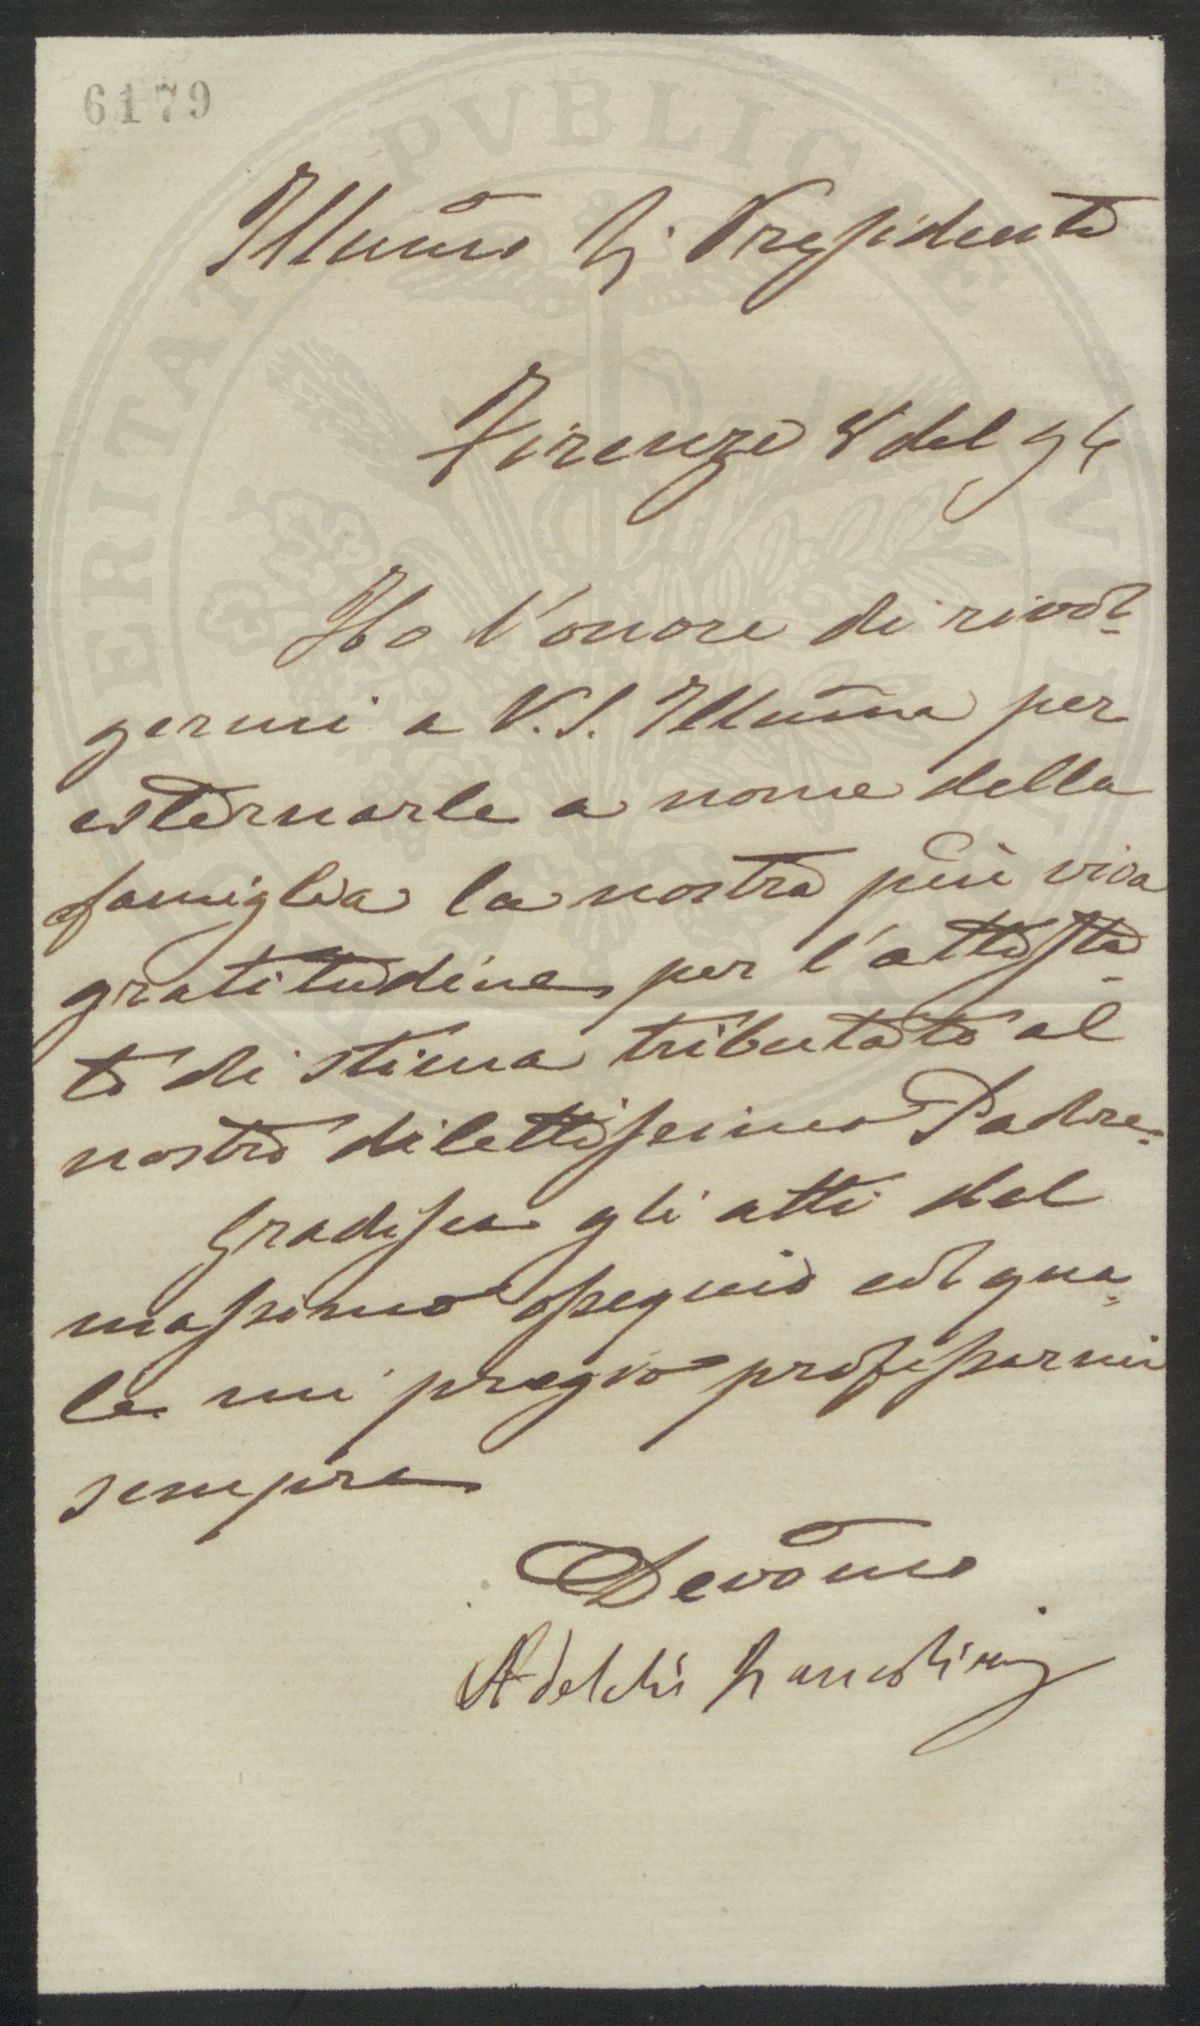 6179
PVBLICAE
VERITATI
Illumo Sig Presidente
Firenze 8 del 94
Ho l'onore di rivol-
germi a V.S. Illuma per
esternarle a nome della
famiglia la nostra più viva
gratitudine per l'attesta-
to di stima tributato al
nostro dilettissimo Padre.
Gradisca gli atti del
massimo ossequio col qua-
le mi pregio professarmi
sempre
Devomo
Adelchi